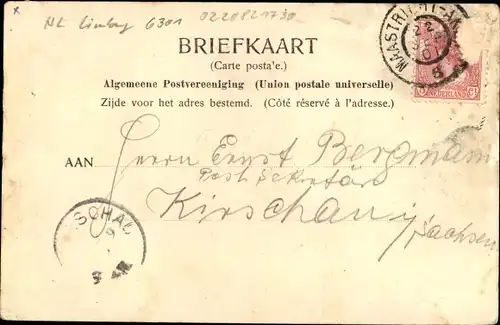 NL Limburg 6301 0220821730
MAASTRICHT-A
BRIEFKAART
(Carte posta'e.)
Algemeene Postvereeniging (Union postale universelle)
NEDERLAND
Zijde voor het adres bestemd. (Côté réservé à l'adresse.)
AAN Herrn Ernst Bergmann
Post Sekretär
Kirschau i/
Sachsen
SCHAU